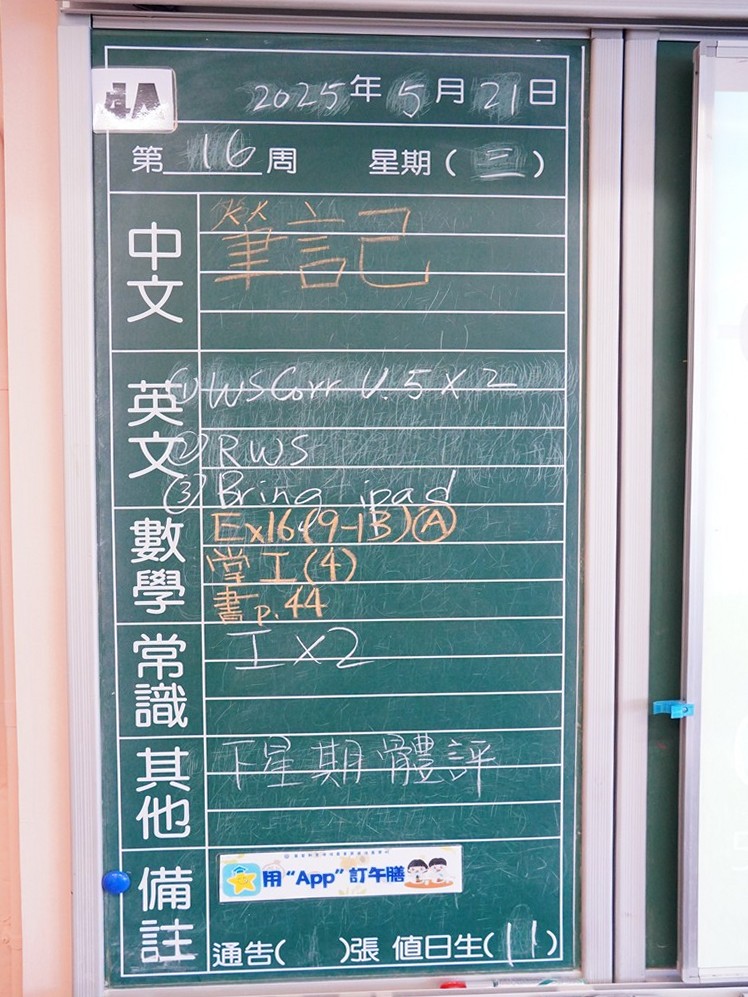 4A
2025年5月21日
第16周 星期(三)
中文
筆記
英文
(1) WS Corr U.5 X 2
(2) RWS
(3) Bring ipad
數學
Ex16(9-13)Ⓐ
堂工(4)
書p.44
常識
工X2
其他
下星期體評
備註
用“App”訂午膳
通告( )張 值日生(11)